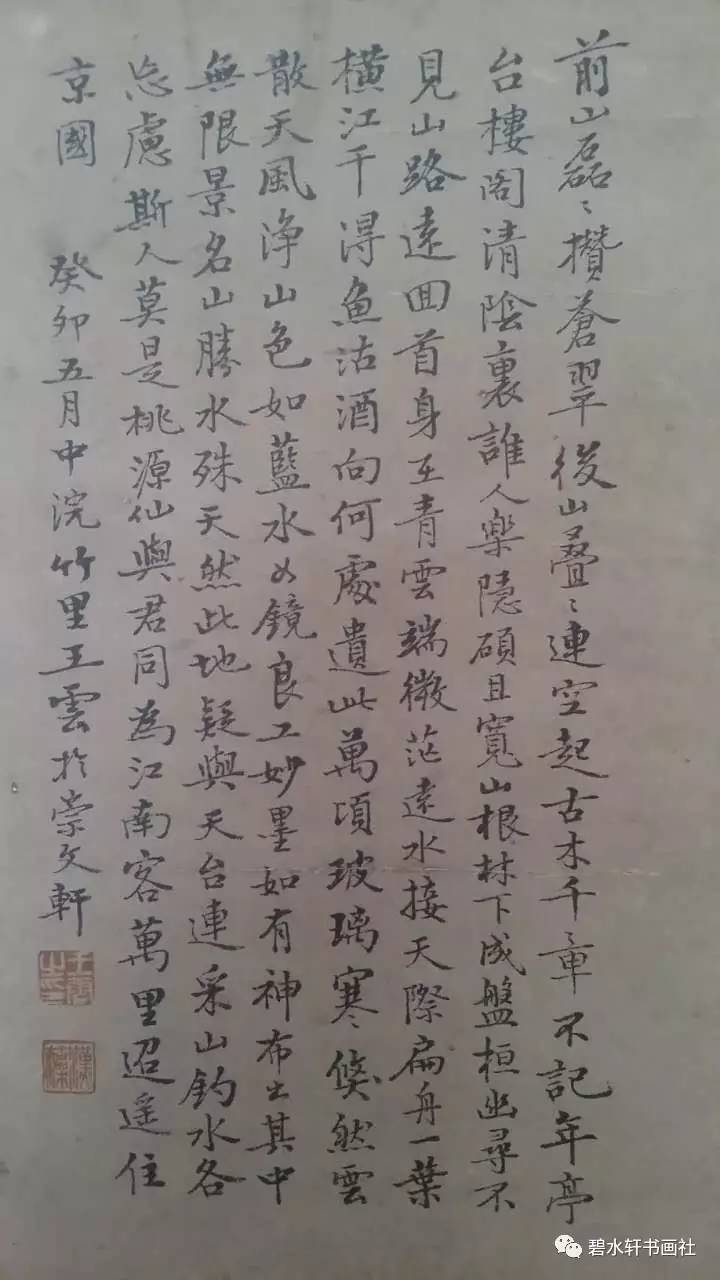 前山磊〻攢蒼翠後山疊〻連空起古木千章不記年亭
台樓閣清陰裏誰人樂隱碩且寬山根林下成盤桓幽尋不
見山路遠回首身在青雲端微茫遠水接天際扁舟一葉
橫江干得魚沽酒向何處遺此萬頃玻璃寒倏然雲
散天風浄山色如藍水如鏡良工妙墨如有神布出其中
無限景名山勝水殊天然此地疑與天台連采山釣水各
忘慮斯人莫是桃源仙與君同為江南客萬里迢遥住
京國
癸卯五月中浣竹里王雲於崇文軒
王雲之印
漢藻
碧水轩书画社